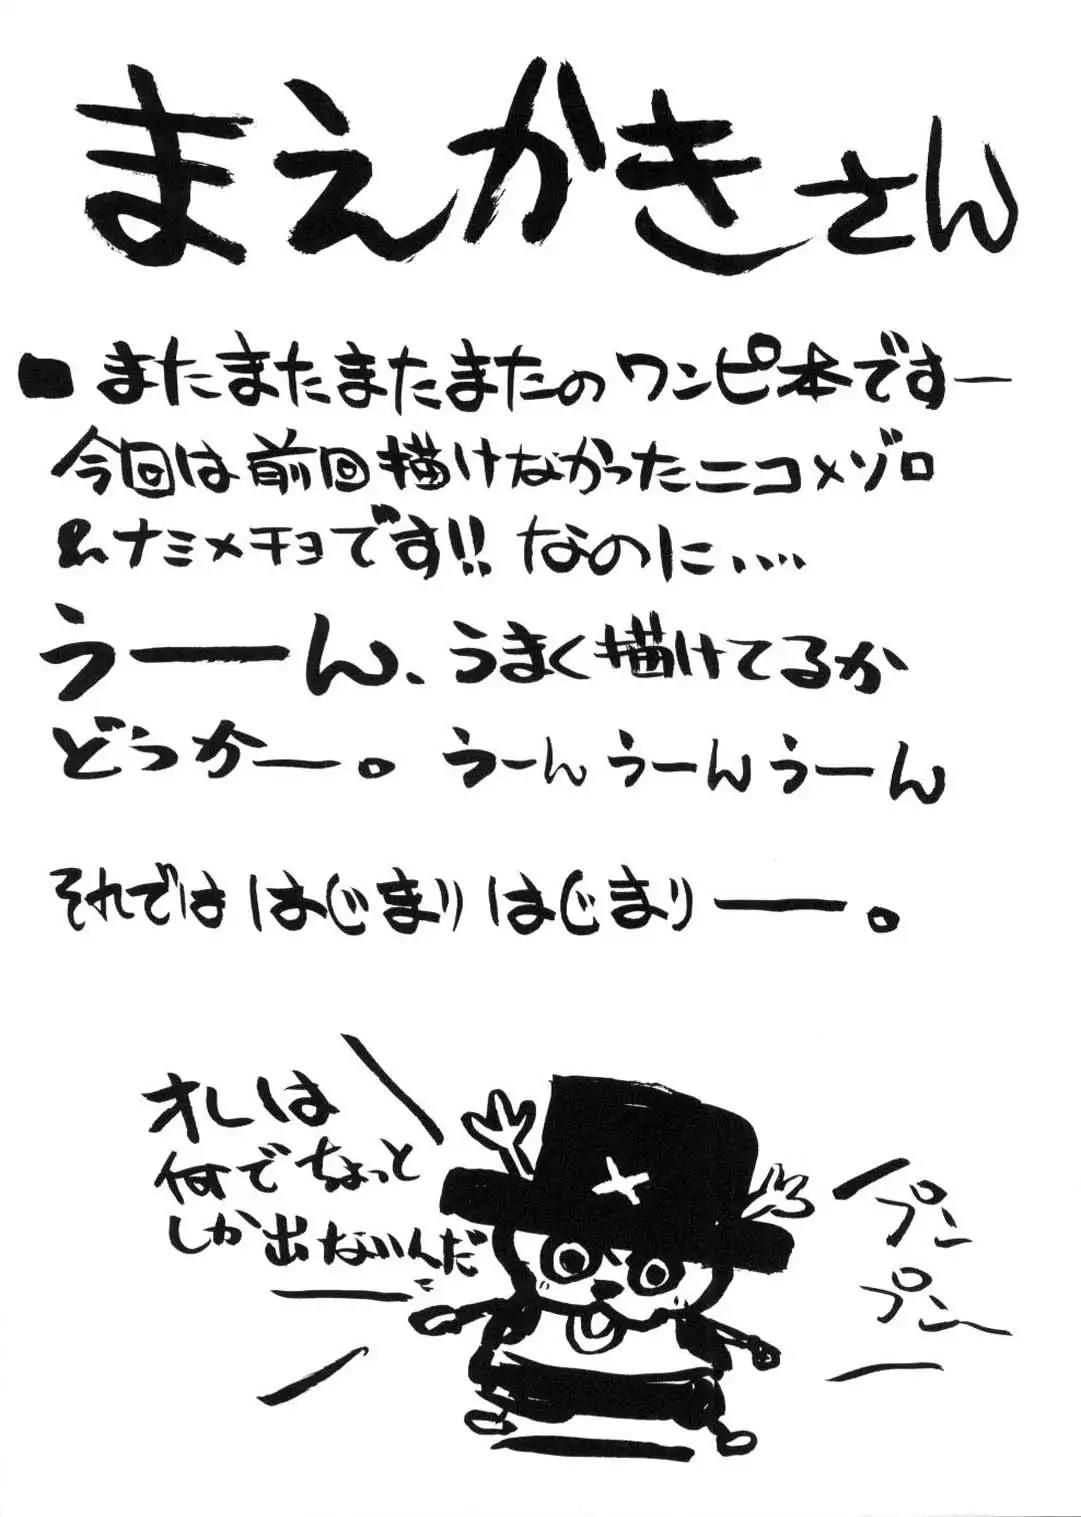 まえかきさん
■またまたまたまたのワンピ本ですー
今回は前回描けなかったニコ×ゾロ
&ナミ×チョです!!なのに、...
うーん、うまく描けてるか
どうかー。うーんうーんうーん
それでははじまりはじまりー。
オレは
何でちょっと
しか出ないんだー
プン
プンー